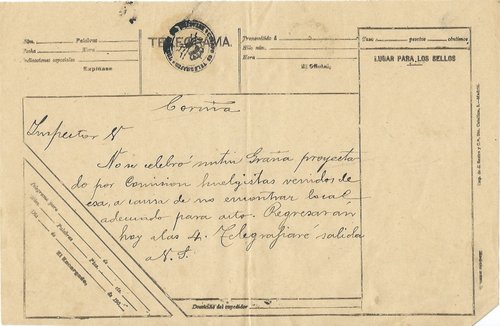 Núm. Palabras
Fecha Hora
Indicaciones especiales
Expídase
TELEGRAMA.
Transmitido á
Hilo núm.
Hora
El Oficial,
Tasa pesetas céntimos
LUGAR PARA LOS SELLOS
Coruña
Inspector V
No se celebró mitin Graña proyecta
do por Comision huelgistas venidos de
esa, a causa de no encontrar local
adecuado para acto. Regresaran
hoy a las 4. Telegrafiaré salida
a V. S.
Telegrama para
Palabras
Día
El Encargado,
Domicilio del expedidor